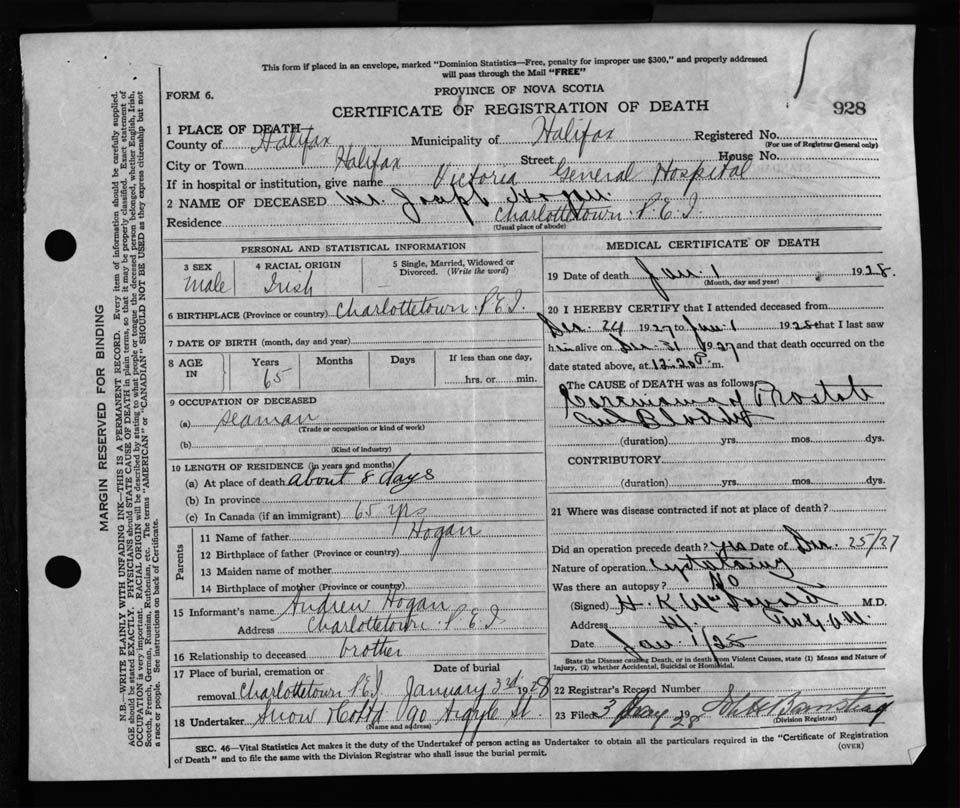 This form if placed in an envelope, marked "Dominion Statistics—Free, penalty for improper use $300," and properly addressed
will pass through the Mail "FREE"
FORM 6.
PROVINCE OF NOVA SCOTIA
CERTIFICATE OF REGISTRATION OF DEATH
928
1 PLACE OF DEATH
County of Halifax Municipality of Halifax Registered No.
(For use of Registrar General only)
City or Town Halifax Street House No.
If in hospital or institution, give name Victoria General Hospital
2 NAME OF DECEASED Mr. Joseph Hogan
Residence Charlottetown P.E.I.
(Usual place of abode)
PERSONAL AND STATISTICAL INFORMATION
3 SEX Male
4 RACIAL ORIGIN Irish
5 Single, Married, Widowed or Divorced. (Write the word)
6 BIRTHPLACE (Province or country) Charlottetown P.E.I.
7 DATE OF BIRTH (month, day and year)
8 AGE IN Years 65 Months Days If less than one day, hrs. or min.
9 OCCUPATION OF DECEASED
(a) seaman
(Trade or occupation or kind of work)
(b)
(Kind of industry)
10 LENGTH OF RESIDENCE (in years and months)
(a) At place of death about 8 days
(b) In province
(c) In Canada (if an immigrant) 65 yrs
Parents
11 Name of father Hogan
12 Birthplace of father (Province or country)
13 Maiden name of mother
14 Birthplace of mother (Province or country)
15 Informant's name Andrew Hogan
Address Charlottetown P.E.I
16 Relationship to deceased brother
17 Place of burial, cremation or removal Charlottetown P.E.I. Date of burial January 3rd 1928
18 Undertaker Snow & Co Ltd 90 Argyle St.
(Name and address)
MEDICAL CERTIFICATE OF DEATH
19 Date of death Jan. 1 1928.
(Month, day and year)
20 I HEREBY CERTIFY that I attended deceased from
Dec. 24 1927 to Jan. 1 1928 that I last saw
him alive on Dec. 31 1927 and that death occurred on the
date stated above, at 12.20 P. m.
The CAUSE OF DEATH was as follows
Carcinoma of Prostate
and Bladder
(duration) yrs. mos. dys.
CONTRIBUTORY
(duration) yrs. mos. dys.
21 Where was disease contracted if not at place of death?
Did an operation precede death? yes Date of Dec. 25/27
Nature of operation
Was there an autopsy? No
(Signed) H. K. McDonald M.D.
Address
Date Jan. 1/28
State the Disease causing Death, or in death from Violent Causes, state (1) Means and Nature of
Injury, (2) whether Accidental, Suicidal or Homicidal.
22 Registrar's Record Number
23 Filed 3 Jany 1928
(Division Registrar)
SEC. 46—Vital Statistics Act makes it the duty of the Undertaker or person acting as Undertaker to obtain all the particulars required in the "Certificate of Registration
of Death" and to file the same with the Division Registrar who shall issue the burial permit.
(OVER)
MARGIN RESERVED FOR BINDING
N.B.—WRITE PLAINLY WITH UNFADING INK—THIS IS A PERMANENT RECORD. Every item of information should be carefully supplied.
AGE should be stated EXACTLY. PHYSICIANS should STATE CAUSE OF DEATH in plain terms, so that it may be properly classified. Exact statement of
OCCUPATION is very important. RACIAL ORIGIN will be described by stating to what people or tongue the deceased person belonged, whether English, Irish,
Scotch, French, German, Russian, Ruthenian, etc. The terms "AMERICAN" or "CANADIAN" SHOULD NOT BE USED as they express citizenship but not
a race or people. See instructions on back of Certificate.